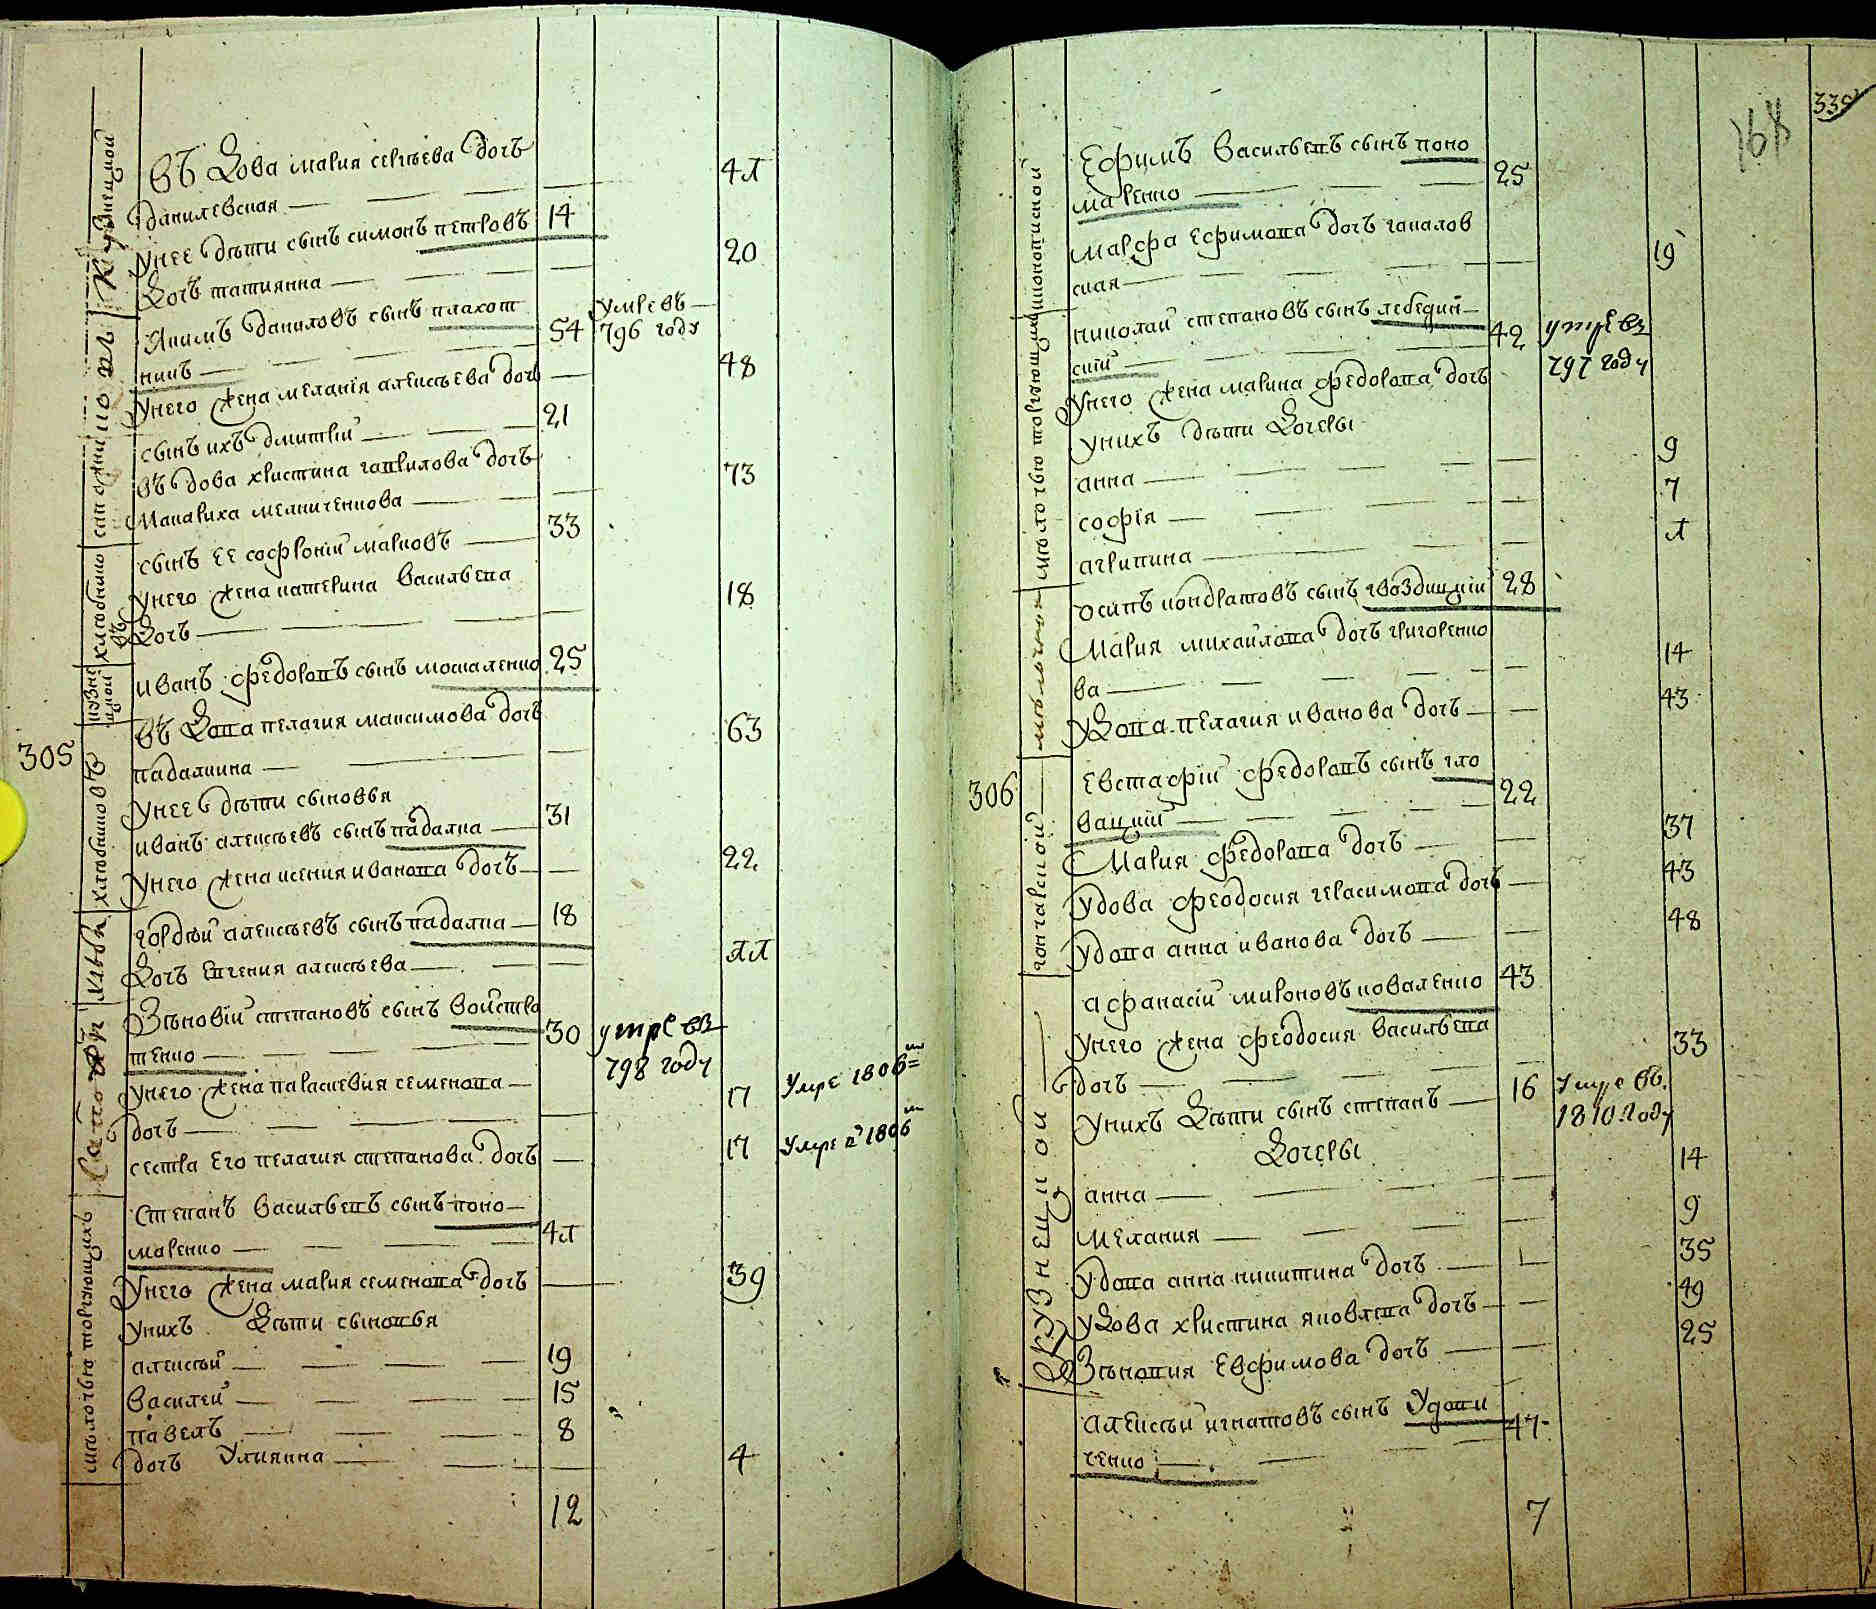 въ Дова мария сергѣева дочъ 41
данилевская
унее дѣти сынъ симонъ петровъ 14
Дочъ татиянна 20
Якимъ даниловъ сынъ плахот 54 умре въ
никъ 796 году
унего жена мелания алексѣева дочъ 48
сынъ ихъ дмитрїй 21
въ дова христина гаврилова дочъ 73
Макариха мелниченкова
сынъ ее софронїй марковъ 33
унего жена катерина василѣева 18
Дочъ
иванъ федоровъ сынъ москаленко 25
въ Дова пелагия максимова дочъ 63
падалкина
305
унее дѣти сыновья
иванъ алексѣевъ сынъ падалка 31
унего жена ксения иванова дочъ 22
гордѣй алексѣевъ сынъ падалка 18
Дочъ евгения алексѣева 11
Зѣновїй степановъ сынъ войство 30 умре въ
тенко 798 году
унего жена парасковия семенова 17 умре 1806
дочъ
сестра его пелагия степанова дочъ 17 умре в 1806
Степанъ василѣевъ сынъ поно
маренко 41
унего жена мария семенова дочъ 39
унихъ Дѣти сыновья
алексѣй 19
василей 15
павелъ 8
дочъ Улиянна 4
12
кузнецкой
сапожником
хлѣбнико
въ
кузне
цкой
хлѣбниковъ
мѣлочью торгующихъ
335
168
Ефимъ василѣевъ сынъ поно 25
маренко
марфа ефимова дочъ гапалов 19
ская
николай степановъ сынъ лебедин 42 умре въ
скїй 797 году
унего жена марина федорова дочъ
унихъ дѣти Дочеры
анна 9
софїя 7
агрипина 1
осипъ кондратовъ сынъ гвоздицкїй 28
Мария михайлова дочъ григоренко 14
ва
уДова пелагия иванова дочъ 43
306
Евстафїй федоровъ сынъ гло 22
вацкїй
Мария федорова дочъ 37
удова феодосия герасимова дочъ 43
удова анна иванова дочъ 48
афанасїй мироновъ коваленко 43
унего жена феодосия василѣева 33
дочъ
унихъ Дѣти сынъ степанъ 16 умре въ
1810 году
Дочеры
анна 14
Мелания 9
удова анна никитина дочъ 35
уДова христина яковлева дочъ 49
Зѣновия Евфимова дочъ 25
Алексѣй игнатовъ сынъ Удови 47
ченко
7
иконописной
мѣлочью торгующих
гончарской
кузнецкой